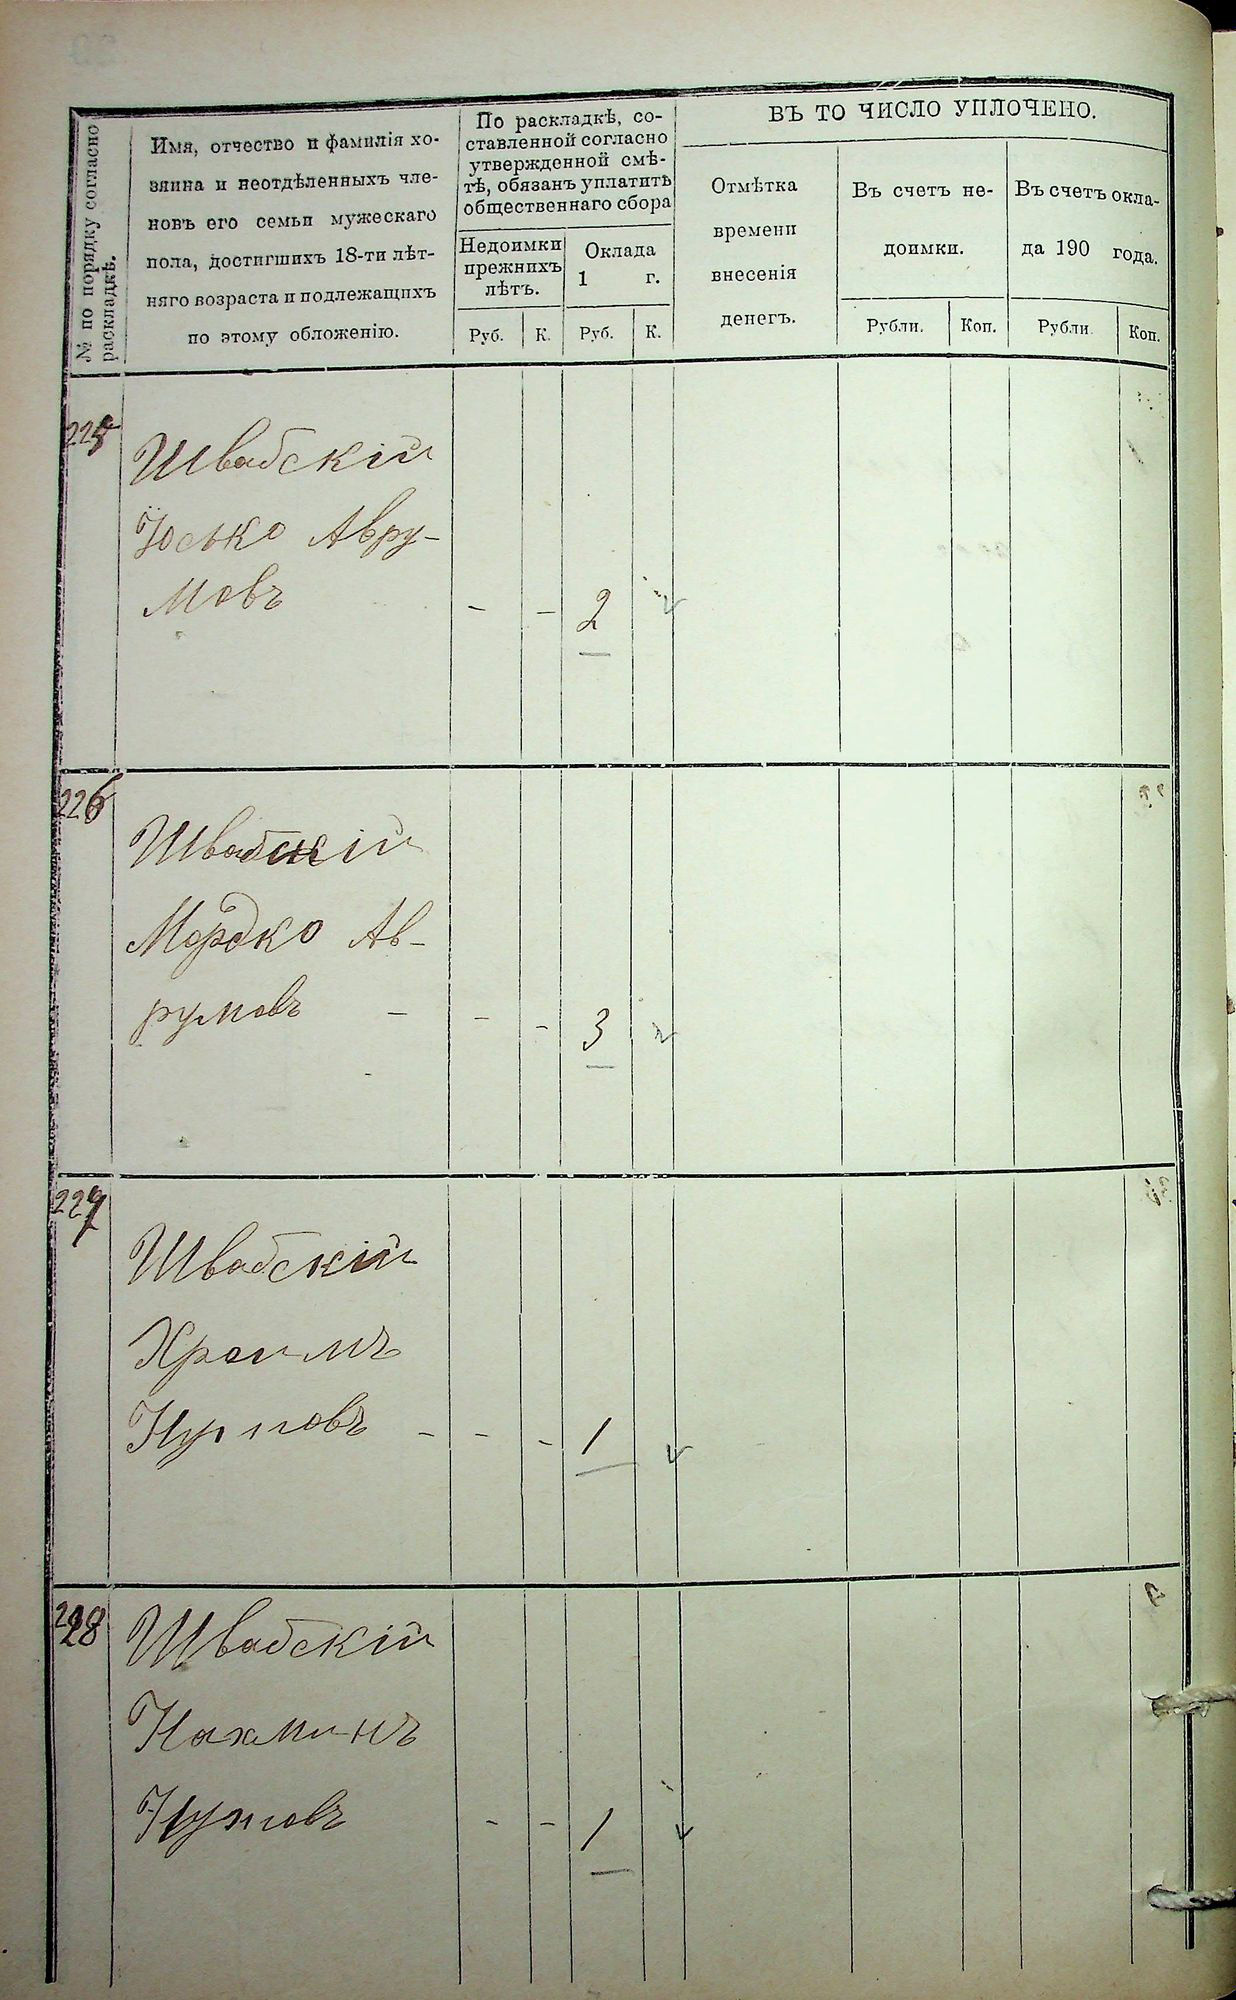 № по порядку согласно
раскладкѣ.
Имя, отчество и фамилія хо-
зяина и неотдѣленныхъ чле-
новъ его семьи мужескаго
пола, достигшихъ 18-ти лѣт-
няго возраста и подлежащихъ
по этому обложенію.
По раскладкѣ, со-
ставленной согласно
утвержденной смѣ-
тѣ, обязанъ уплатить
общественнаго сбора
Недоимки
прежнихъ
лѣтъ.
Оклада
1 г.
Руб.
К.
Руб.
К.
ВЪ ТО ЧИСЛО УПЛОЧЕНО.
Отмѣтка
времени
внесенія
денегъ.
Въ счетъ не-
доимки.
Въ счетъ окла-
да 190 года.
Рубли.
Коп.
Рубли
Коп.
225
Швабскій
Юсько Авру-
мовъ - - 2
226
Швабскій
Мордко Ав-
румовъ - - - 3
227
Швабскій
Хроимъ
- - - 1
228
Швабскій
Нахманъ
- - 1